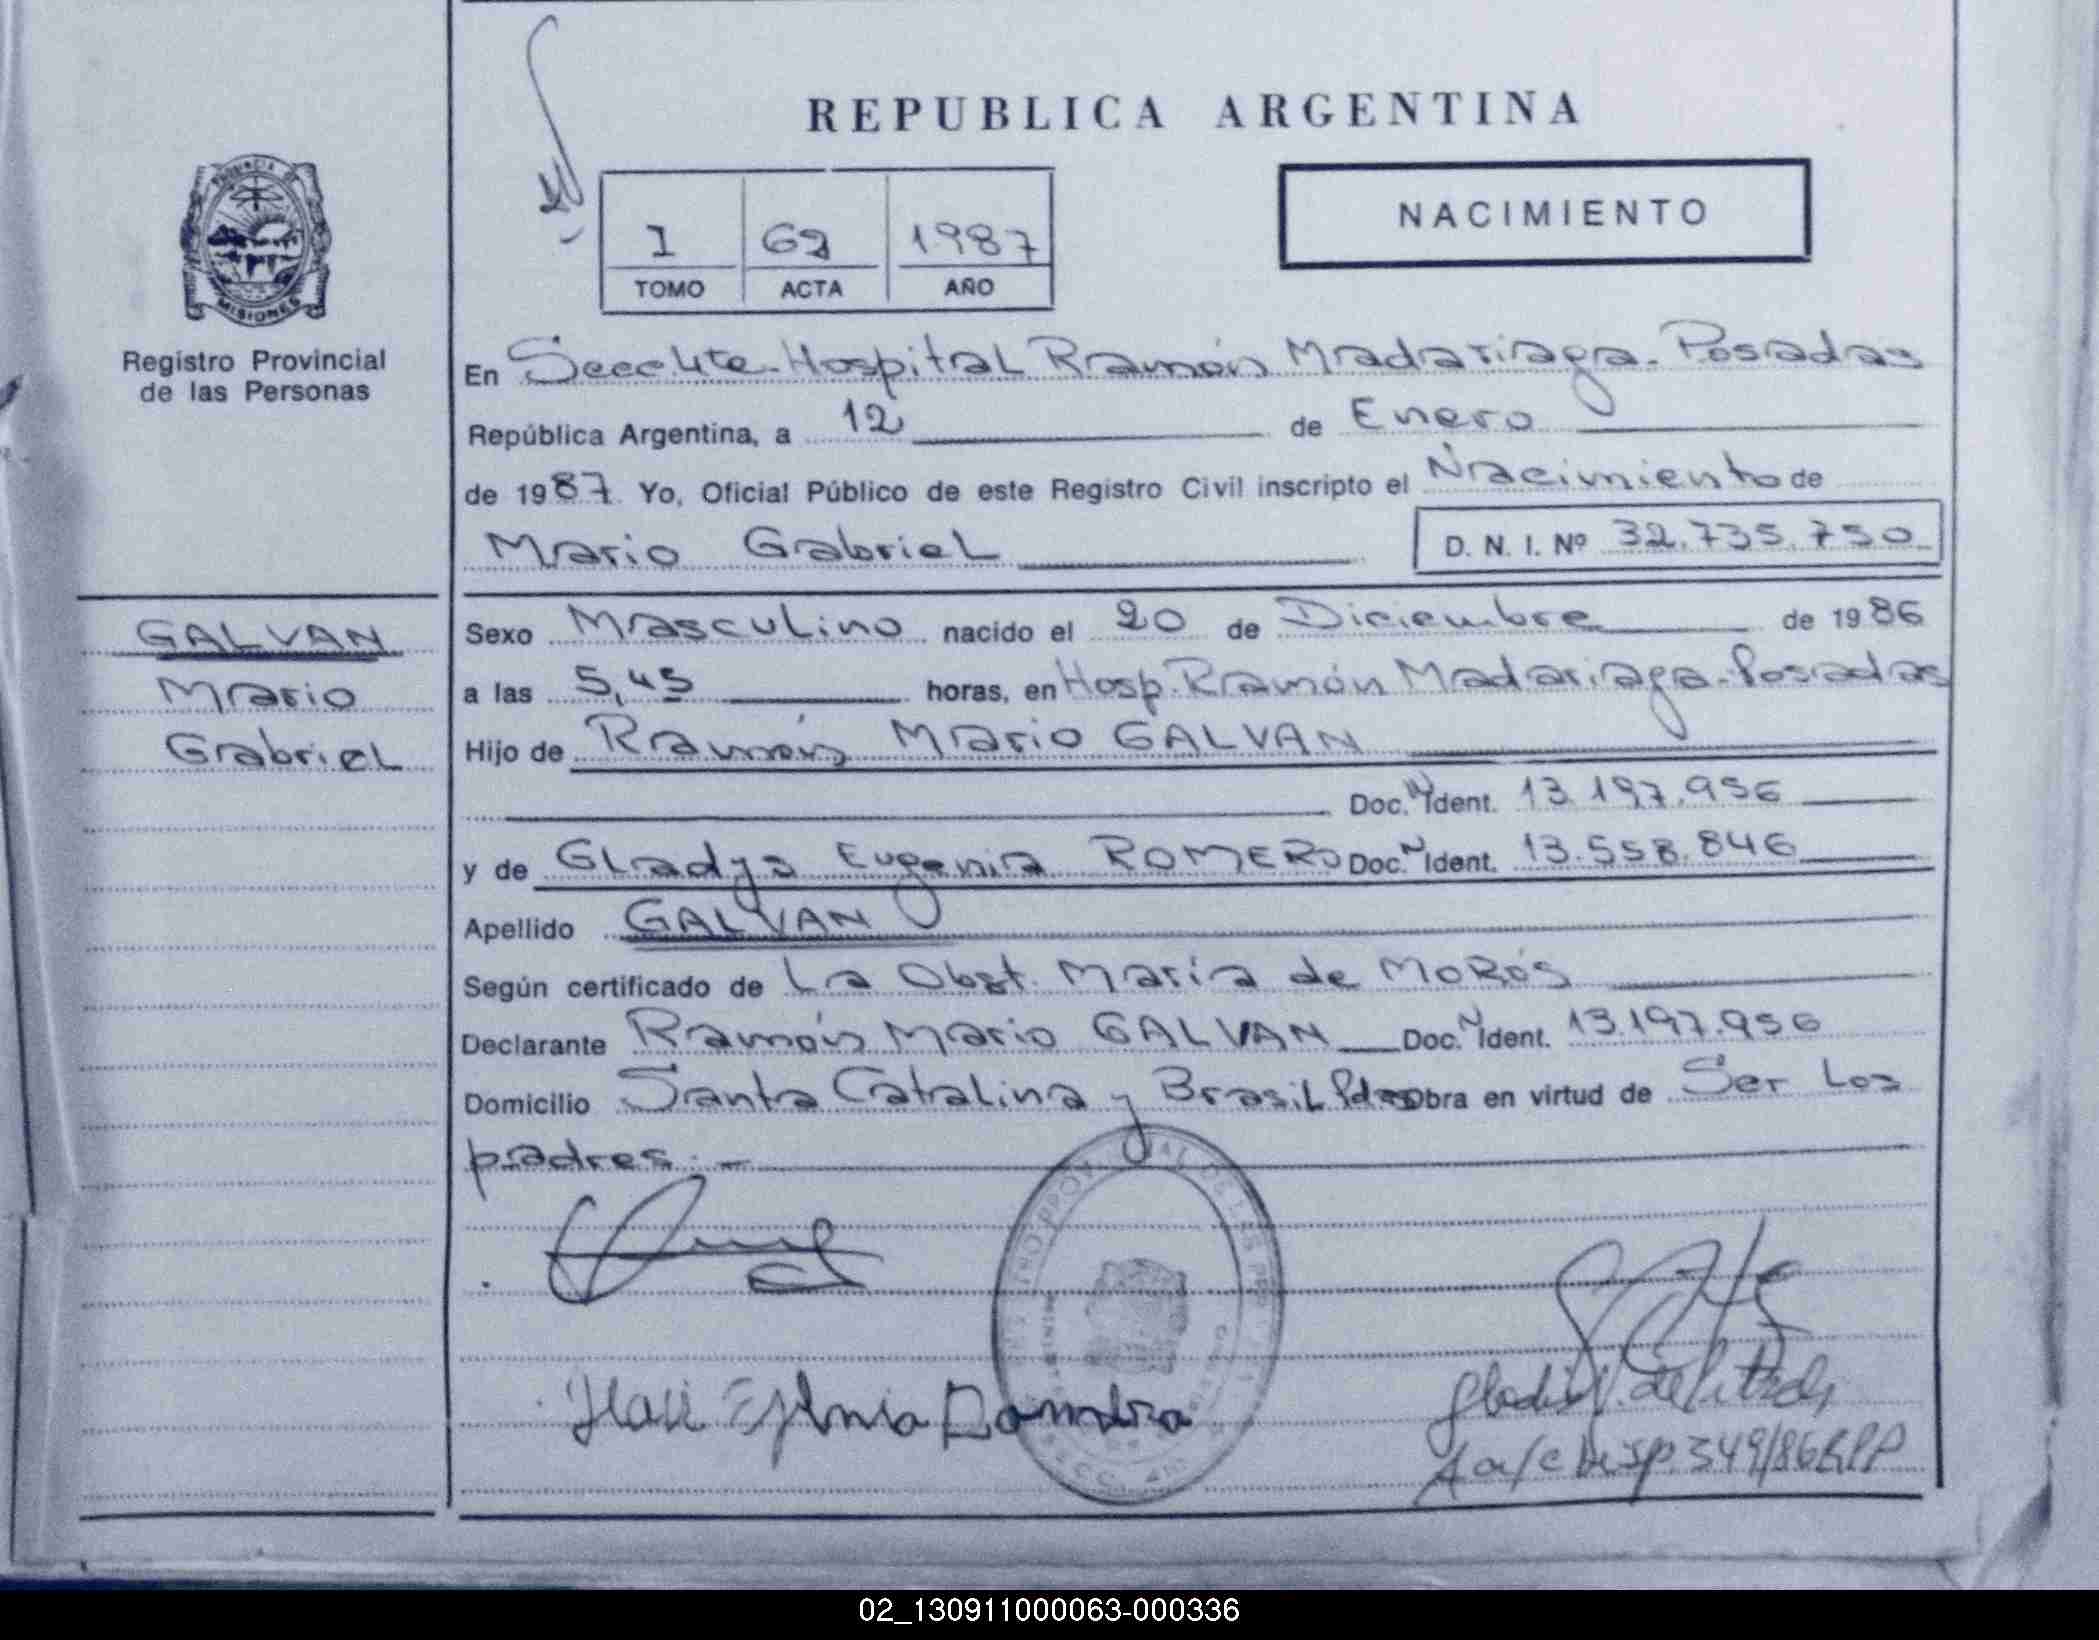 REPUBLICA ARGENTINA
NACIMIENTO
1 62 1987
TOMO ACTA AÑO
PROVINCIA D MISIONES
Registro Provincial
de las Personas
En Secc 4te. Hospital Ramón Madariaga. Posadas
República Argentina, a 12 de Enero
de 1987 Yo, Oficial Público de este Registro Civil inscripto el Nacimiento de
Mario Gabriel D. N. I. Nº 32.735.750
GALVAN
Mario
Gabriel
Sexo Masculino nacido el 20 de Diciembre de 1986
a las 5,45 horas, en Hosp. Ramón Madariaga. Posadas
Hijo de Ramón Mario GALVAN
Doc. N Ident. 13.197.956
y de Gladys Eugenia ROMERO Doc. N Ident. 13.558.846
Apellido GALVAN
Según certificado de La Obst. María de MoRós
Declarante Ramón Mario GALVAN Doc. N Ident. 13.197.956
Domicilio Santa Catalina y Brasil Pdas Obra en virtud de Ser Los
padres. -
A a/c Disp. 349/86 RPP
02_130911000063-000336